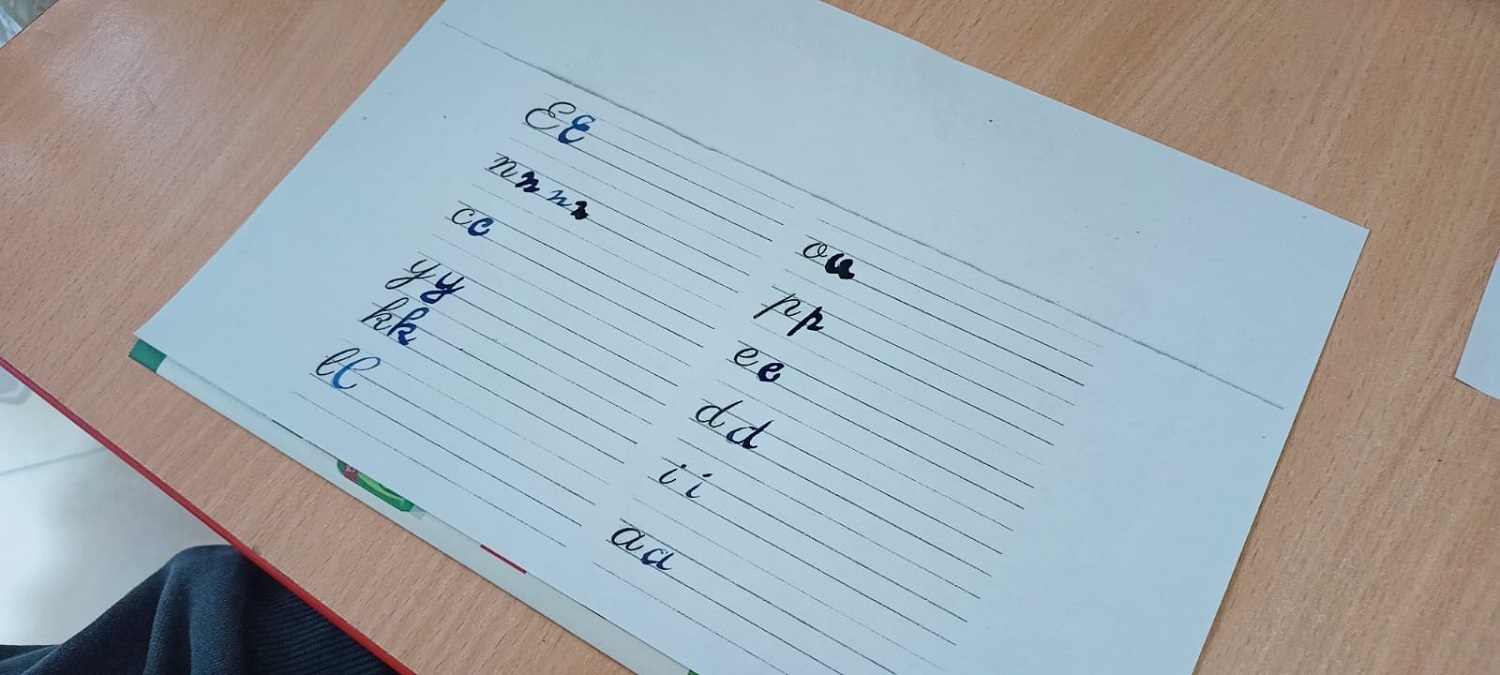 E E
n n n n
c c
y y
k k
l l
o u
p p
e e
d d
i i
a a